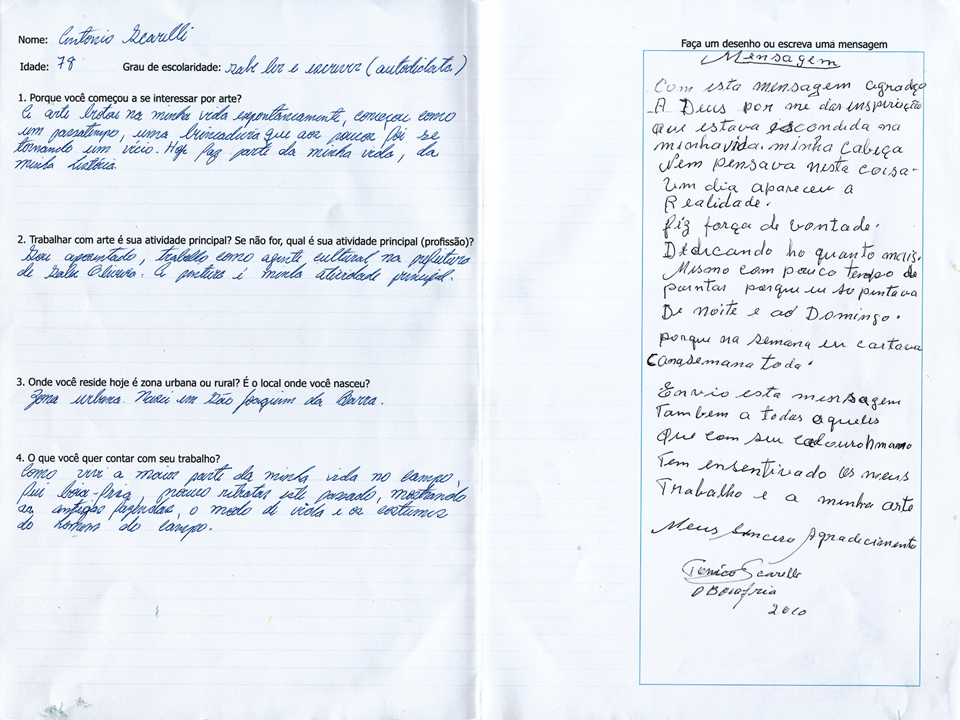 Nome: Antonio Scarelli
Idade: 78 Grau de escolaridade: sabe ler e escrever (autodidata)
1. Porque você começou a se interessar por arte?
A arte brotou na minha vida espontaneamente, começou como
um passatempo, uma brincadeira que aos poucos foi se
tornando um vício. Hoje faz parte da minha vida, da
minha história.
2. Trabalhar com arte é sua atividade principal? Se não for, qual é sua atividade principal (profissão)?
Sou aposentado, trabalho como agente cultural na prefeitura
de Sales Oliveira. A pintura é minha atividade principal.
3. Onde você reside hoje é zona urbana ou rural? É o local onde você nasceu?
Zona urbana. Nasci em São Joaquim da Barra.
4. O que você quer contar com seu trabalho?
Como vivi a maior parte da minha vida no campo,
fui boia-fria, procuro retratar este passado, mostrando
as antigas fazendas, o modo de vida e os costumes
do homem do campo.
Faça um desenho ou escreva uma mensagem
Mensagem
Com esta mensagem agradeço
A Deus por me dar inspiração
Que estava escondida na
minha vida. minha Cabeça
Nem pensava nesta coisa.
Um dia apareceu a
Realidade.
fiz força de vontade.
Dedicando ho quanto mais.
Mesmo com pouco tempo de
pintar porque eu so pintava
De noite e ao Domingo.
porque na semana eu cortava
Cana semana toda.
Envio esta mensagem
Tambem a todas aqueles
Que com seu humano
Tem ensentivado os meus
Trabalho e a minha arte
Meus Sincero Agradecimento
Tonico Scarelli
O Boiafria
2010